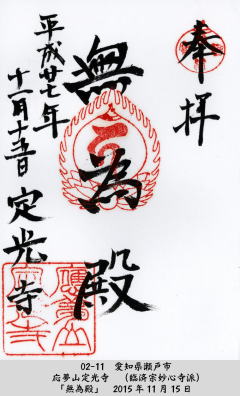 奉拝
無為殿
平成廿七年
十一月十五日
定光寺
02-11 愛知県瀬戸市
応夢山定光寺 （臨済宗妙心寺派）
「無為殿」 2015年11月15日